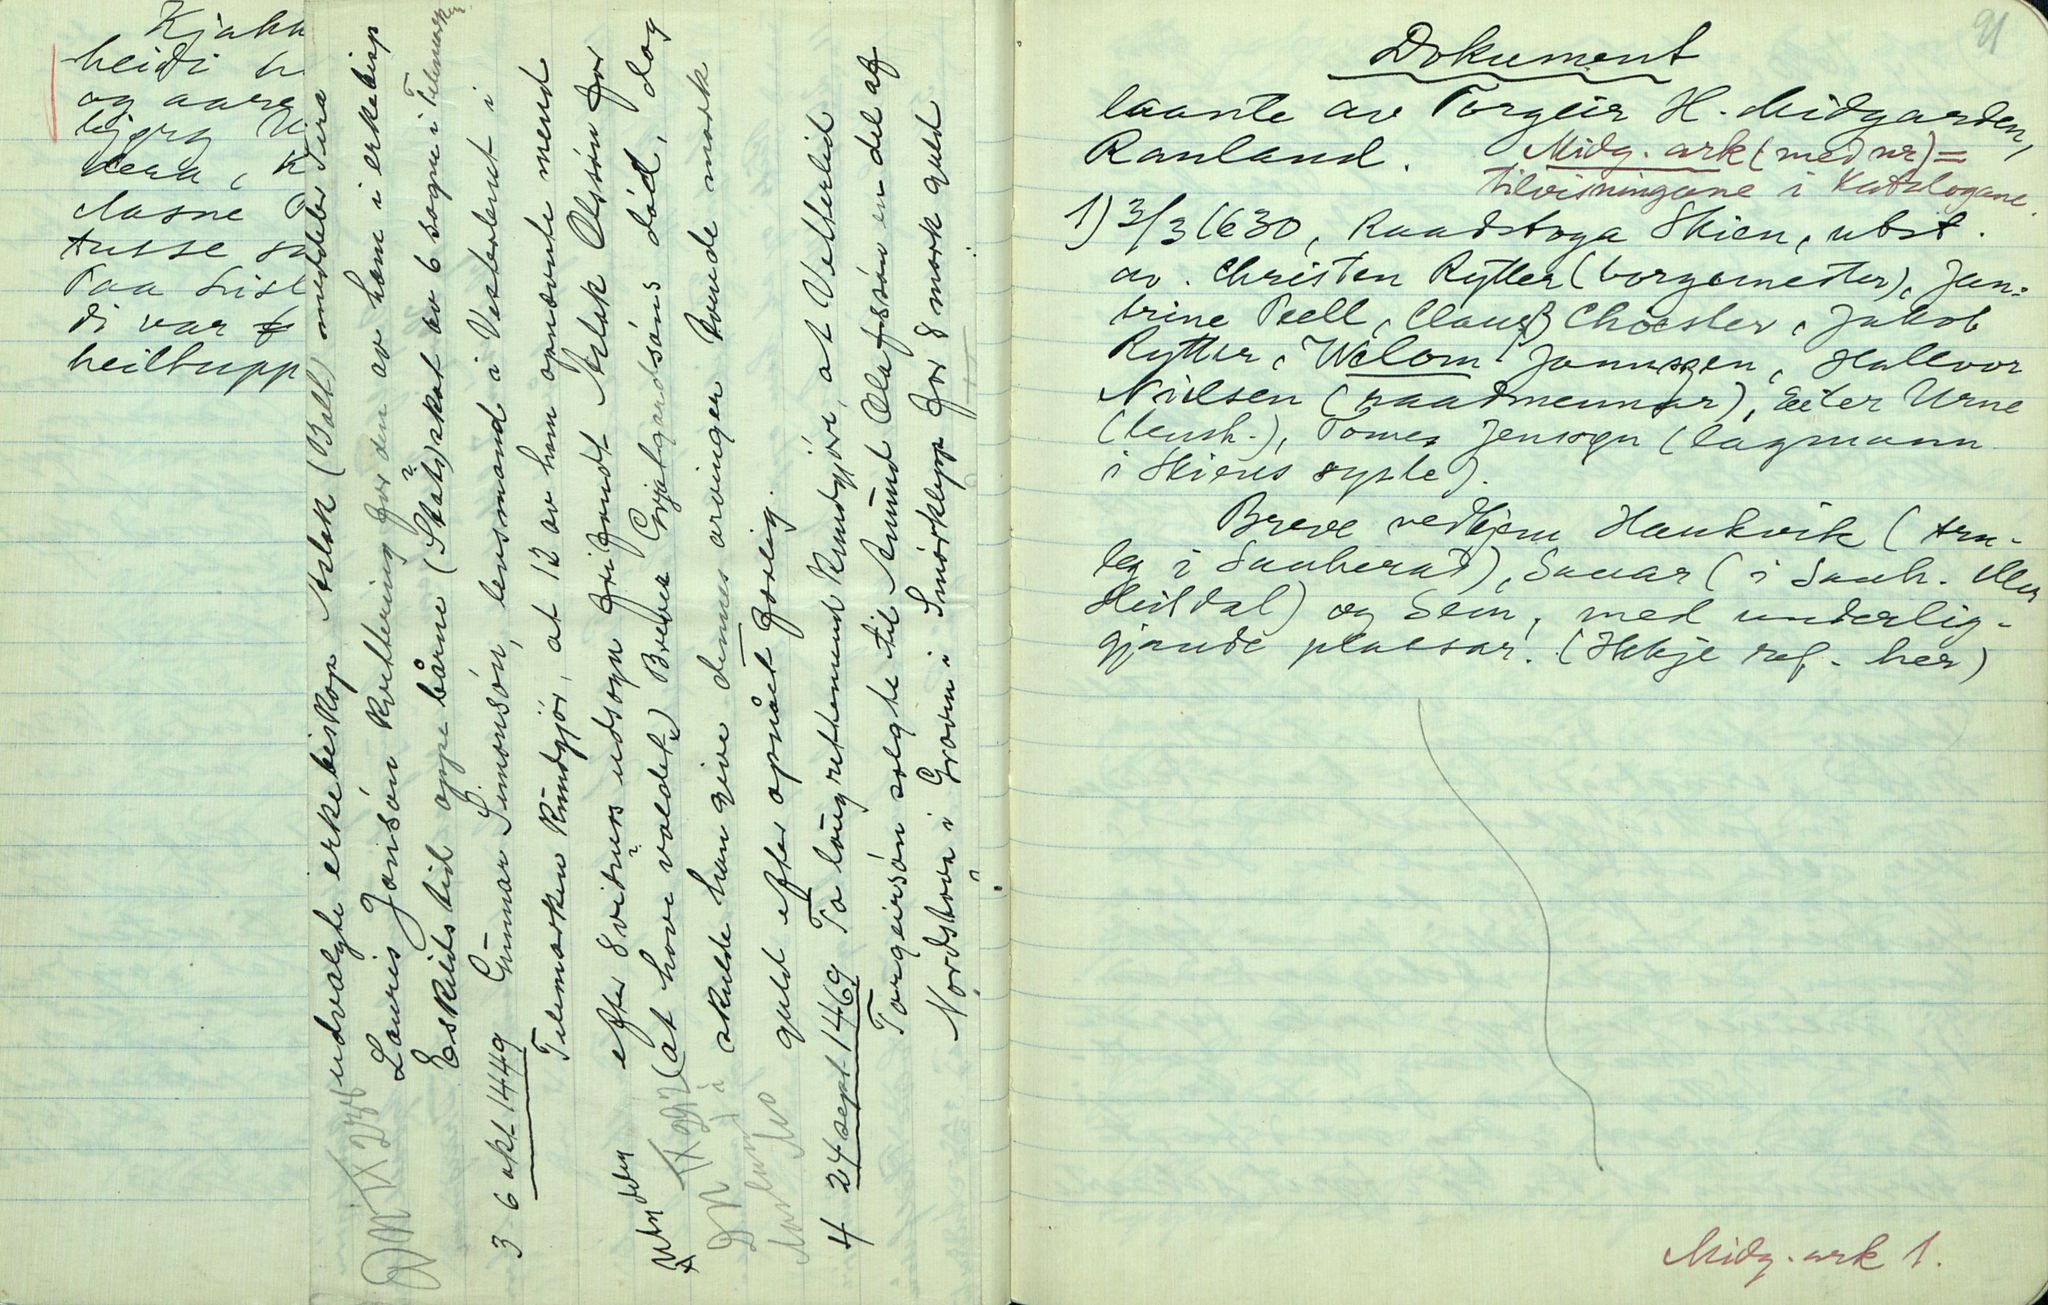 Kjakk
heidi h
og aare
bjørg U
dera, K
Aasne
tusse sa
Paa List
di var
heiltupp
udvalgte erkebiskop Aslak (Bolt) meddeler Sira
Lauris Jonisón kvittering for den av ham i erkebisp
Eskilds tid oppebårne (Stats?) skat av 6 sogne i Telemarken
DN IX 278
3 6 okt 1449 Gunnar Simonsón, lensmand i Vesterlenet i
Telemarken kundgjør, at 12 av ham opnævnte mend
efter 8 vidners udsogn frifandt Aslak Olssøn for
(at have voldet) Brede Gvjalgardssóns død, dog
skulde han give dennes arvinger Bonde mark
guld efter opnået forlig.
DN IX 297
4 24 sept 1469 To laugrettemend kundgjøre, at Vetterlid
Torgeirsón solgte til Amund Olafssón en del af
Nordstove i Grovm i Smörklepp for 8 mark guld
91
Dokument
laante av Torgeir H. Midgarden,
Rauland.
Midg. ark (med nr) =
tilvisningane i Katalogane.
1) 3/3 1630, Raadstoga Skien, utst.
av. Christen Rytter (borgemester), Jan-
trine Teell, Clauss Choesler, Jakob
Rytter, Welom Jannssen, Hallvor
Nielsen (raadmennar), Eiler Urne
(lensh.), Tomes Jensogn (lagmann
i Skiens sysle).
Breve vedkjem Haukvik (Arn-
leg i Sauherad), Sauar (i Sauh. eller
Heitdal) og Sem, med underlig-
gjande plassar. (Ikkje ref. her)
Midg. ark 1.